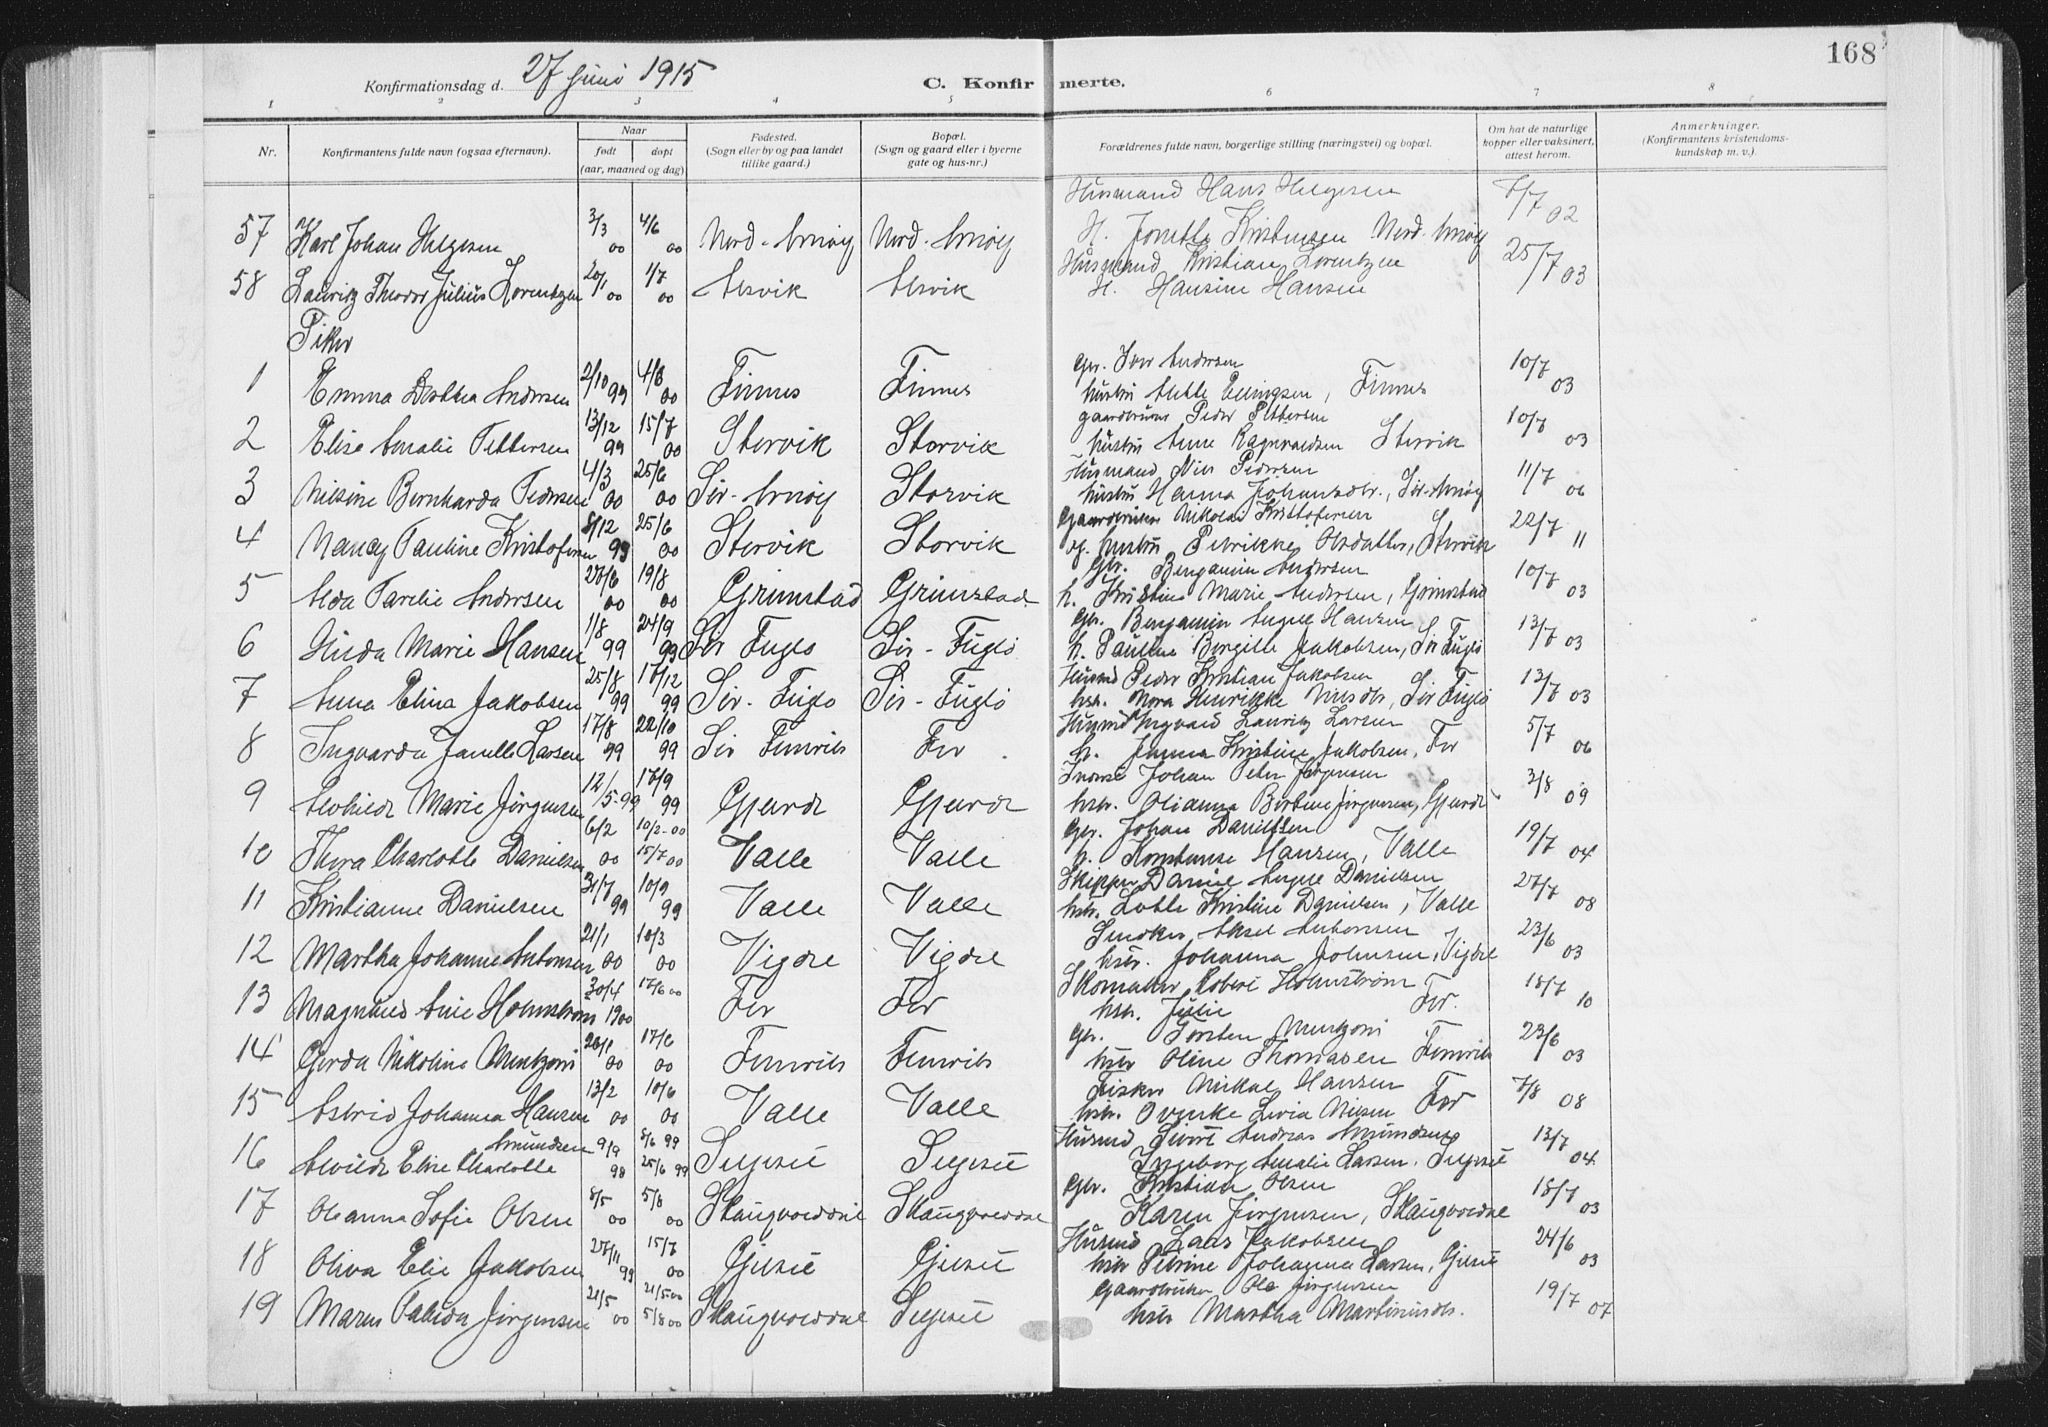 168
Konfirmationsdag d. 27 juni 1915
C. Konfirmerte.
1 2 3 4 5 6 7 8
Nr.
Konfirmantens fulde navn (ogsaa efternavn).
Naar
født
døpt
(aar, maaned og dag)
Fødested.
(Sogn eller by og paa landet
tillike gaard.)
Bopæl.
(Sogn og gaard eller i byerne
gate og hus-nr.)
Forældrenes fulde navn, borgerlige stilling (næringsvei) og bopæl.
Om hat de naturlige
kopper eller vaksinert,
attest herom.
Anmerkninger.
(Konfirmantens kristendoms-
kundskap m. v.).
Husmand Hans Helgesen
57 Karl Johan Helgesen 3/3 00 4/6 00 Nord-Arnøy Nord-Arnøy H. Jonette Kristensen Nord-Arnøy 02
Husmand Kristian Lorentzen
58 Lauritz Theodor Julius Lorentzen 20/1 00 1/7 00 Alsvik Alsvik H. Hansine Hansen 25/7 03
Piker
Gbr. Iver Andersen
1 Emma Dorthea Andersen 2/10 99 4/8 00 Finnes Finnes hustru Mette Ellingsen, Finnes 10/7 03
gaardbruker Peder Pettersen
2 Elise Amalie Pettersen 13/12 99 15/7 00 Storvik Storvik hustru Anne Ragnvaldsen Storvik 10/7 03
Husmand Nils Pedersen
3 Nilsine Bernharda Pedersen 4/3 00 25/6 00 Sør-Arnøy Storvik hustru Hanna Johansdtr., Sør-Arnøy 11/7 06
Gaardbruker Nikolai Kristofersen
4 Nancy Pauline Kristofersen 8/12 99 25/6 00 Storvik Storvik og hustru Petrikke Olsdatter, Storvik 22/7 11
Gbr. Benjamin Andersen
5 Alda Parelie Andersen 27/6 00 19/8 00 Grimstad Grimstad h. Kristine Marie Andersen, Grimstad 10/7 03
Gbr. Benjamin August Hansen
6 Hilda Marie Hansen 1/8 99 24/9 99 Sør Fuglø Sør-Fuglø h. Pauline Bergitte Jakobsen, Sør Fuglø 13/7 03
Husmd Peder Kristian Jakobsen
7 Anna Elina Jakobsen 25/8 99 17/12 99 Sør-Fuglø Sør-Fuglø hstr. Nora Henrikke Nilsdtr, Sør Fuglø 13/7 03
Husmd Ingvald Lauritz Larsen
8 Ingvarda Janette Larsen 17/8 99 22/10 99 Sør Femris For h. Janna Kristine Jakobsen, For 5/7 06
Johan Peter Jørgensen
9 Alvhilde Marie Jørgensen 12/5-99 17/9 99 Gjerde Gjerde hstr. Olianna Bertine Jørgensen, Gjerde 3/8 09
Gbr. Johan Danielsen
10 Thora Charlotte Danielsen 6/2 00 10/2-00 15/7 00 Valle Valle h. Konstanse Hansen, Valle 19/7 04
Skipper Daniel August Danielsen
11 Kristianne Danielsen 31/7 99 10/9 99 Valle Valle hstr. Lotte Kristine Danielsen, Valle 27/7 08
Snedker Aksel Antonsen
12 Martha Johanne Antonsen 21/1 00 10/3 00 Vigdel Vigdel hstr. Johanna Johnsen, Vigdel 23/6 03
Skomaker Robert Holmstrøm
13 Magnhild Anie Holmstrøm 30/4 1900 17/6 00 For For hstr. Julie For. 18/7 10
Gbr. Torsten Mentzoni
14 Gerda Nikoline Mentzoni 00 17/6 00 Femris Femris hstr Oline Thomasen Femris 23/6 03
Fisker Mikal Hansen
15 Astrid Johanna Hansen 13/2 00 10/6 00 Valle Valle hstr. Lovia Nilsen For 7/8 08
Husmd Sivert Andreas Amundsen
16 Alvilde Elise Charlotte Amundsen 9/9 98 8/6 99 25/6 99 Selsø Selsø Ingeborg Amalie Larsen. 13/7 04
Gbr. Kristian Olsen
17 Oleanna Sofie Olsen 8/5 00 5/8 00 Skaugvoldde Skaugvoldde Karen Jørgensen, Skaugvoldde 18/7 03
Husmd Lars Jakobsen
18 Oliva Elie Jakobsen 27/11 99 15/7 00 Gjelsø Gjelsø hstr Petrine Johanna Larsen, 24/6 03
Gaardbruker Ole Jørgensen
19 Maren Palida Jørgensen 21/5 00 21/5 00 5/8 00 Skaugvoldde hstr Martha Martinusdtr. 19/7 07